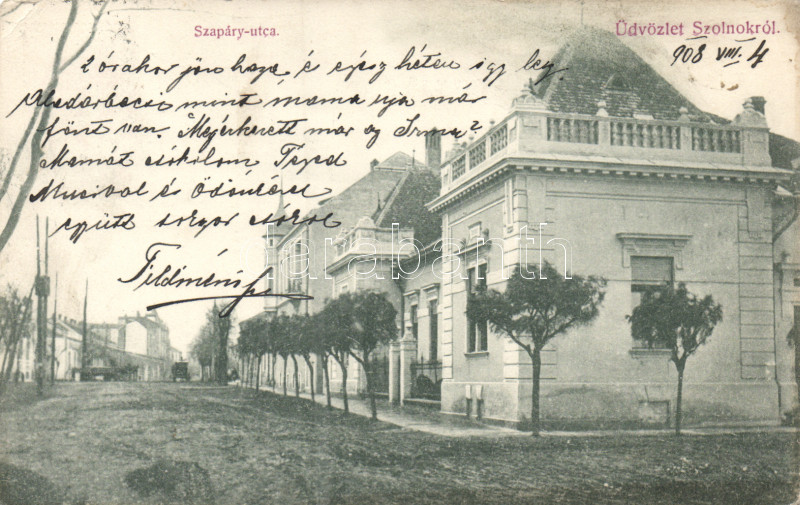 Szapáry-utca.
Üdvözlet Szolnokról.
908 VIII. 4
2 órakor jön haza, és egész héten így lesz
Aladárbácsi mint mama írja már
fönt van. Megérkezett már az Irma?
Mamát csókolom Téged
Mucival és Ödönkével
együtt sokszor csókol
arabanth